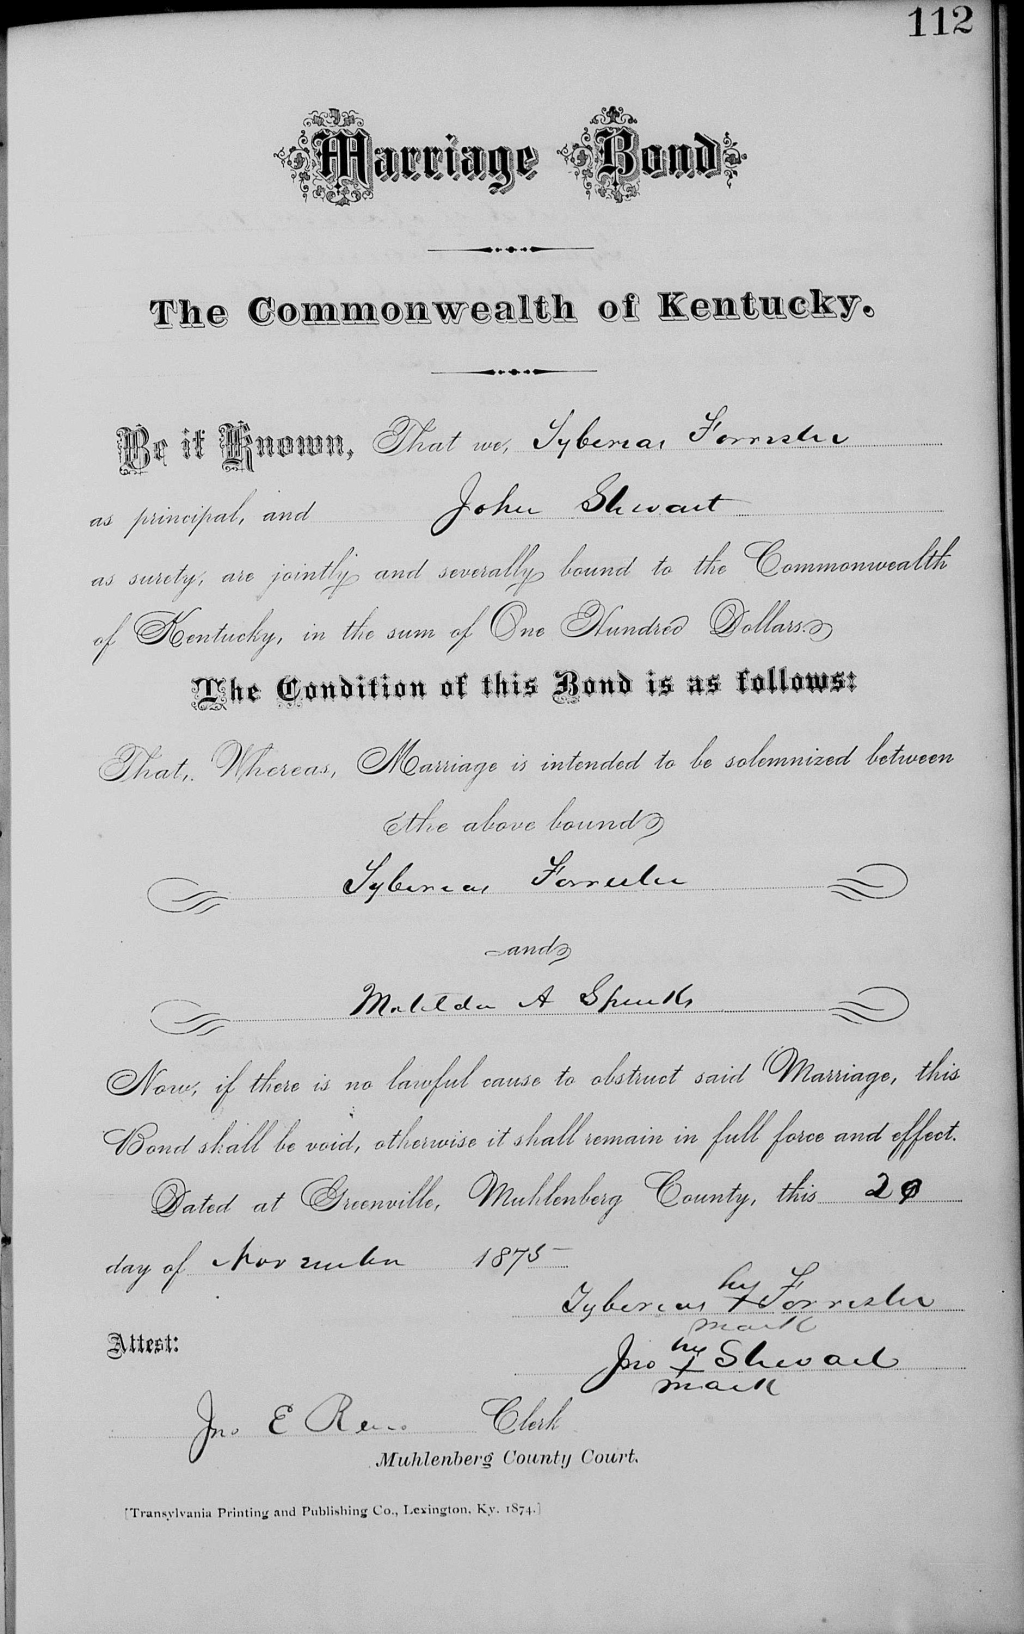 112
Marriage Bond
The Commonwealth of Kentucky.
Be it Known, That we, Tybereas Forrester
as principal, and John Stewart
as surety, are jointly and severally bound to the Commonwealth
of Kentucky, in the sum of One Hundred Dollars.
The Condition of this Bond is as follows:
That, Whereas, Marriage is intended to be solemnized between
the above bound
Tybereas Forrester
and
Matilda A Spinks
Now, if there is no lawful cause to obstruct said Marriage, this
Bond shall be void, otherwise it shall remain in full force and effect.
Dated at Greenville, Muhlenberg County, this
day of November 1875
his
Tybereas X Forrester
mark
Attest:
his
Jno X Stewart
mark
Jno E Reno Clerk
Muhlenberg County Court.
[Transylvania Printing and Publishing Co., Lexington, Ky. 1874.]